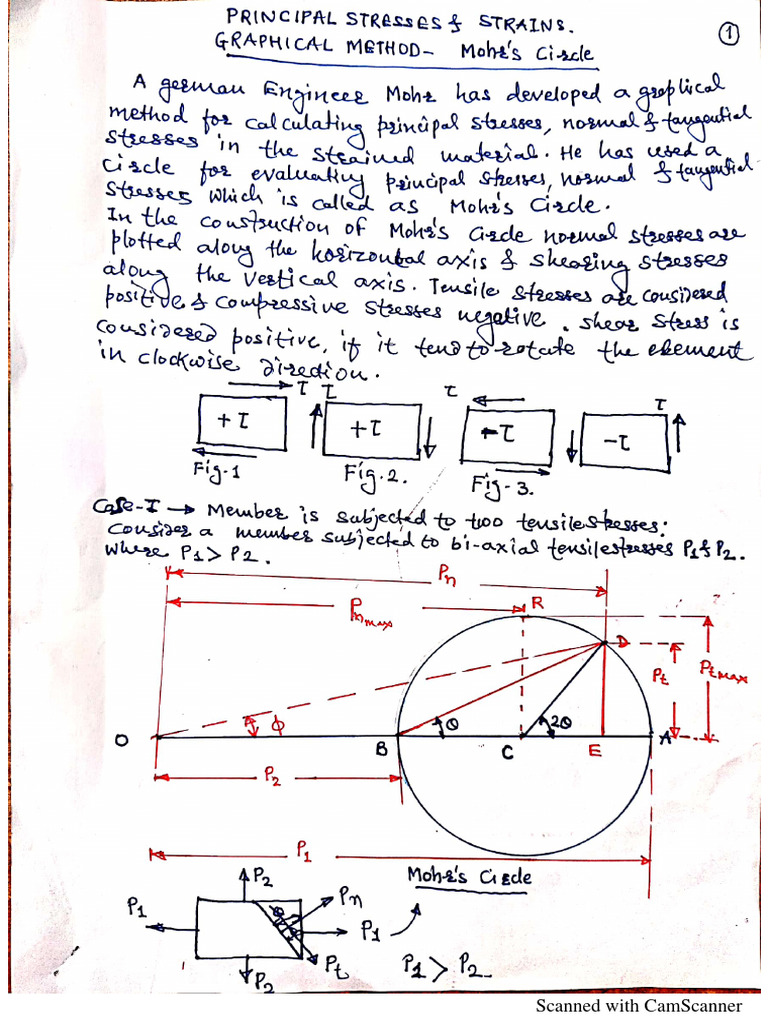 PRINCIPAL STRESSES & STRAINS.
1
GRAPHICAL METHOD- Mohr's Circle
A german Engineer Mohr has developed a graphical
method for calculating principal stresses, normal & tangential
stresses in the strained material. He has used a
circle for evaluating principal stresses, normal & tangential
stresses which is called as Mohr's Circle.
In the construction of Mohr's Circle normal stresses are
plotted along the horizontal axis & shearing stresses
along the vertical axis. Tensile stresses are considered
positive & compressive stresses negative. Shear stress is
considered positive, if it tend to rotate the element
in clockwise direction.
τ τ τ τ
+τ +τ -τ -τ
Fig-1 Fig.2. Fig-3.
Case-I → Member is subjected to two tensile stresses:
Consider a member subjected to bi-axial tensile stresses P1 & P2.
where P1 > P2.
Pn
Pn max R
D
Pt Pt max
O ϕ θ 2θ
B C E A
P2
P1
Mohr's Circle
P2
P1 θ Pn
P1
Pt
P2
P1 > P2
Scanned with CamScanner